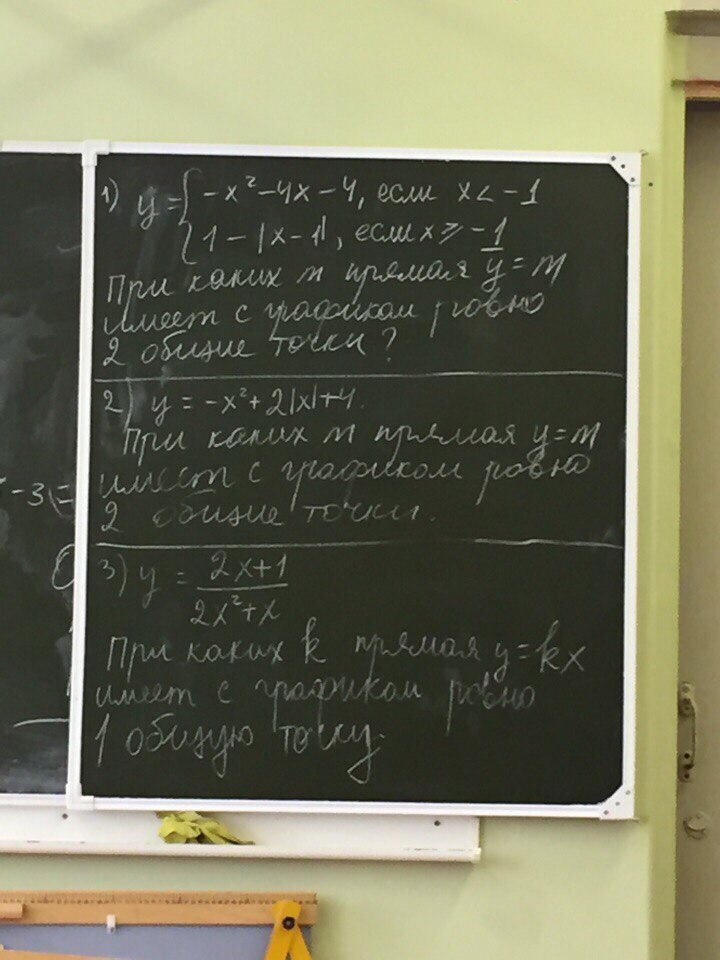 1) y = { -x² - 4x - 4, если x < -1
{ 1 - |x - 1|, если x ⩾ -1
При каких m прямая y = m
имеет с графиком ровно
2 общие точки?
2) y = -x² + 2|x| + 4.
При каких m прямая y = m
имеет с графиком ровно
2 общие точки.
- 3 =
3) y = 2x+1 / 2x²+x
При каких k прямая y = kx
имеет с графиком ровно
1 общую точку.